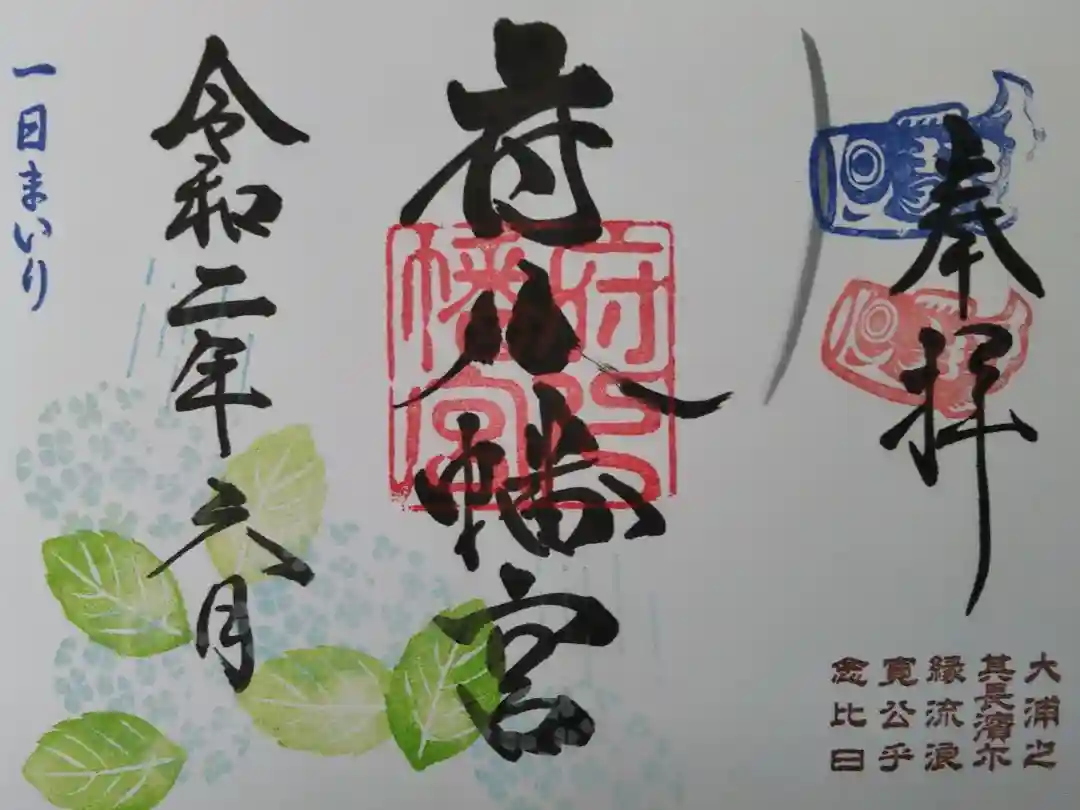 奉拝
大浦之
其長濱尓
縁流浪
寛公乎
念比日
府八幡宮
府八
幡宮
令和二年六月
一日まいり